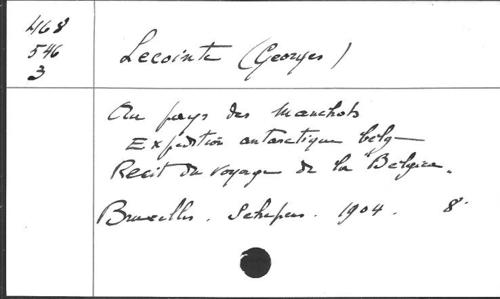 468
546
3
Lecointe (Georges)
Au pays des Manchots
Expédition antarctique belg
Récit du voyage de la "Belgica.
Bruxelles. Schepens. 1904. 8°